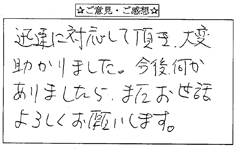 ☆ご意見・ご感想☆
迅速に対応して頂き、大変
助かりました。今後、何か
ありましたら、またお世話
よろしくお願いします。